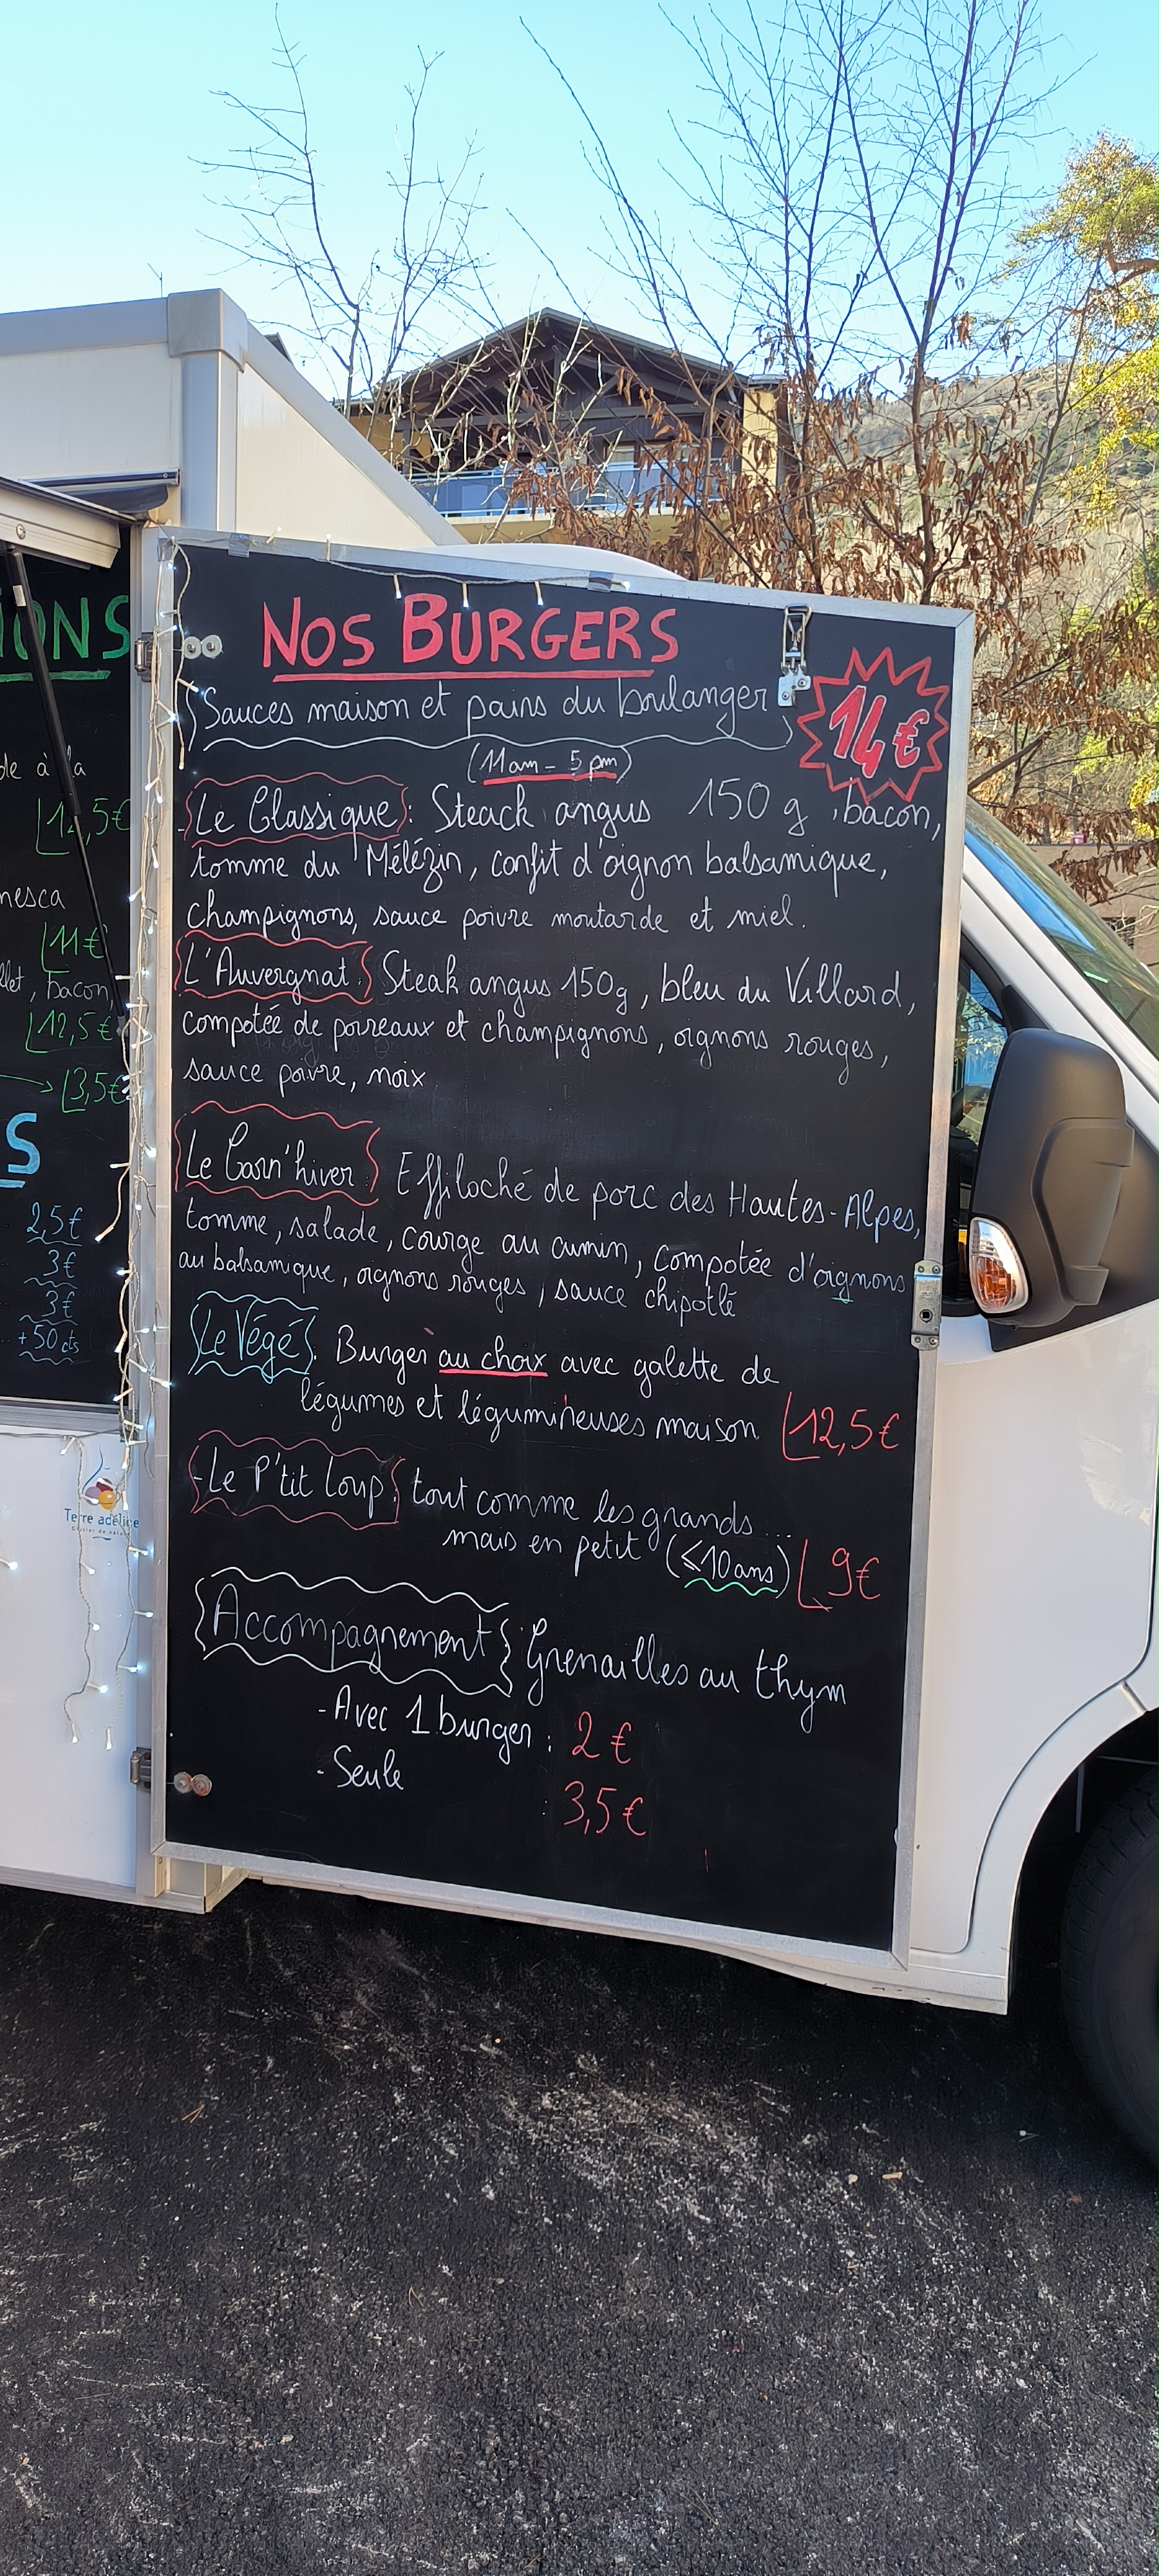 IONS
à la
12,5€
nesca
11€
llet, bacon,
12,5€
3,5€
S
2,5€
3€
3€
+50 cts
Terre adélice
NOS BURGERS
14€
Sauces maison et pains du boulanger
(11am - 5pm)
- Le Classique : Steack angus 150 g, bacon,
tomme du Mélézin, confit d'oignon balsamique,
champignons, sauce poivre moutarde et miel.
L'Auvergnat : Steak angus 150g, bleu du Villard,
compotée de poireaux et champignons, oignons rouges,
sauce poivre, noix
Le Corn'hiver : Effiloché de porc des Hautes-Alpes,
tomme, salade, courge au cumin, compotée d'oignons
au balsamique, oignons rouges, sauce chipotlé
Le Végé : Burger au choix avec galette de
légumes et légumineuses maison 12,5€
- Le P'tit Loup : tout comme les grands...
mais en petit (≤10 ans) 9€
Accompagnement Grenailles au thym
- Avec 1 burger : 2 €
- Seule
: 3,5 €